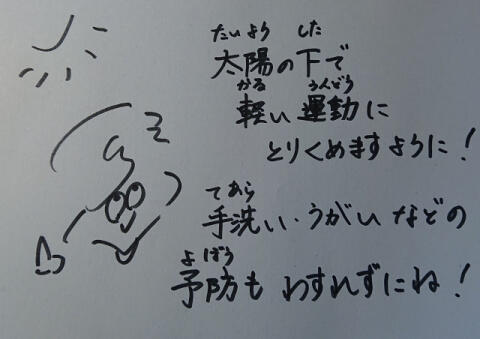 たいよう した
太陽の下で
かる うんどう
軽い運動に
とりくめますように!
てあら
手洗い・うがいなどの
よぼう
予防もわすれずにね!